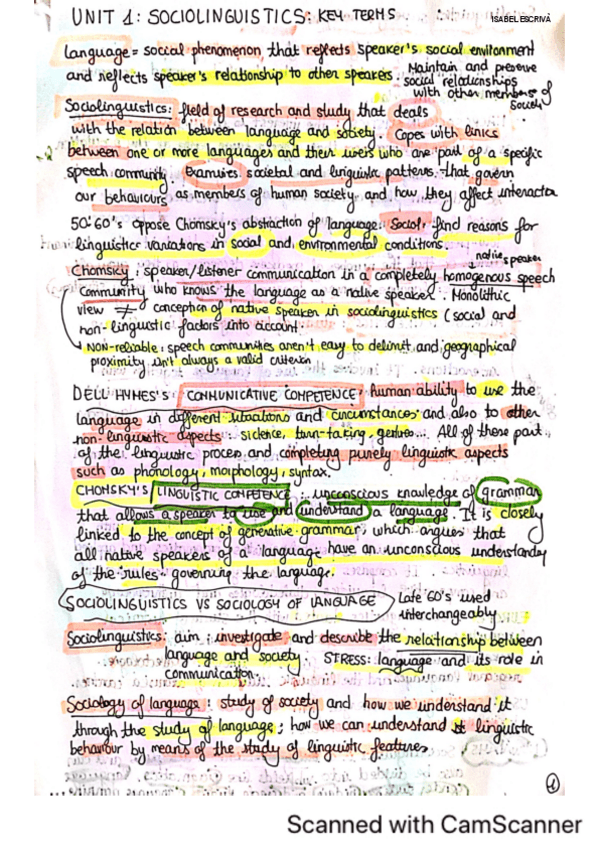 UNIT 1: SOCIOLINGUISTICS: KEY TERMS
ISABEL ESCRIVÀ
Language = social phenomenon that reflects speaker's social environment
and reflects speaker's relationship to other speakers. Maintain and preserve
social relationships
with other members of
Society
Sociolinguistics: field of research and study that deals
with the relation between language and society. Copes with links
between one or more languages and their users who are part of a specific
speech community. Examines societal and linguistic patterns that govern
our behaviours as members of human society and how they affect interaction
50'60's oppose Chomsky's abstraction of language. Socio: find reasons for
linguistic variations in social and environmental conditions.
native speaker
Chomsky: speaker/listener communication in a completely homogenous speech
community who knows the language as a native speaker. Monolithic
view ≠ conception of native speaker in sociolinguistics (social and
non-linguistic factors into account.
NON-reliable: speech communities aren't easy to delimit and geographical
proximity isn't always a valid criterion
DELL HYMES'S: COMMUNICATIVE COMPETENCE: human ability to use the
language in different situations and circumstances and also to other
non-linguistic aspects: silence, turn-taking, gestures... All of these part
of the linguistic process and completing purely linguistic aspects
such as phonology, morphology, syntax.
CHOMSKY'S LINGUISTIC COMPETENCE: unconscious knowledge of grammar
that allows a speaker to use and understand a language. It is closely
linked to the concept of generative grammar, which argues that
all native speakers of a language have an unconscious understanding
of the rules governing the language.
SOCIOLINGUISTICS VS SOCIOLOGY OF LANGUAGE
Late 60's used
interchangeably
Sociolinguistics: aim: investigate and describe the relationship between
language and society. STRESS: language and its role in
communication.
Sociology of language: study of society and how we understand it
through the study of language; how we can understand linguistic
behaviour by means of the study of linguistic features.
1
Scanned with CamScanner